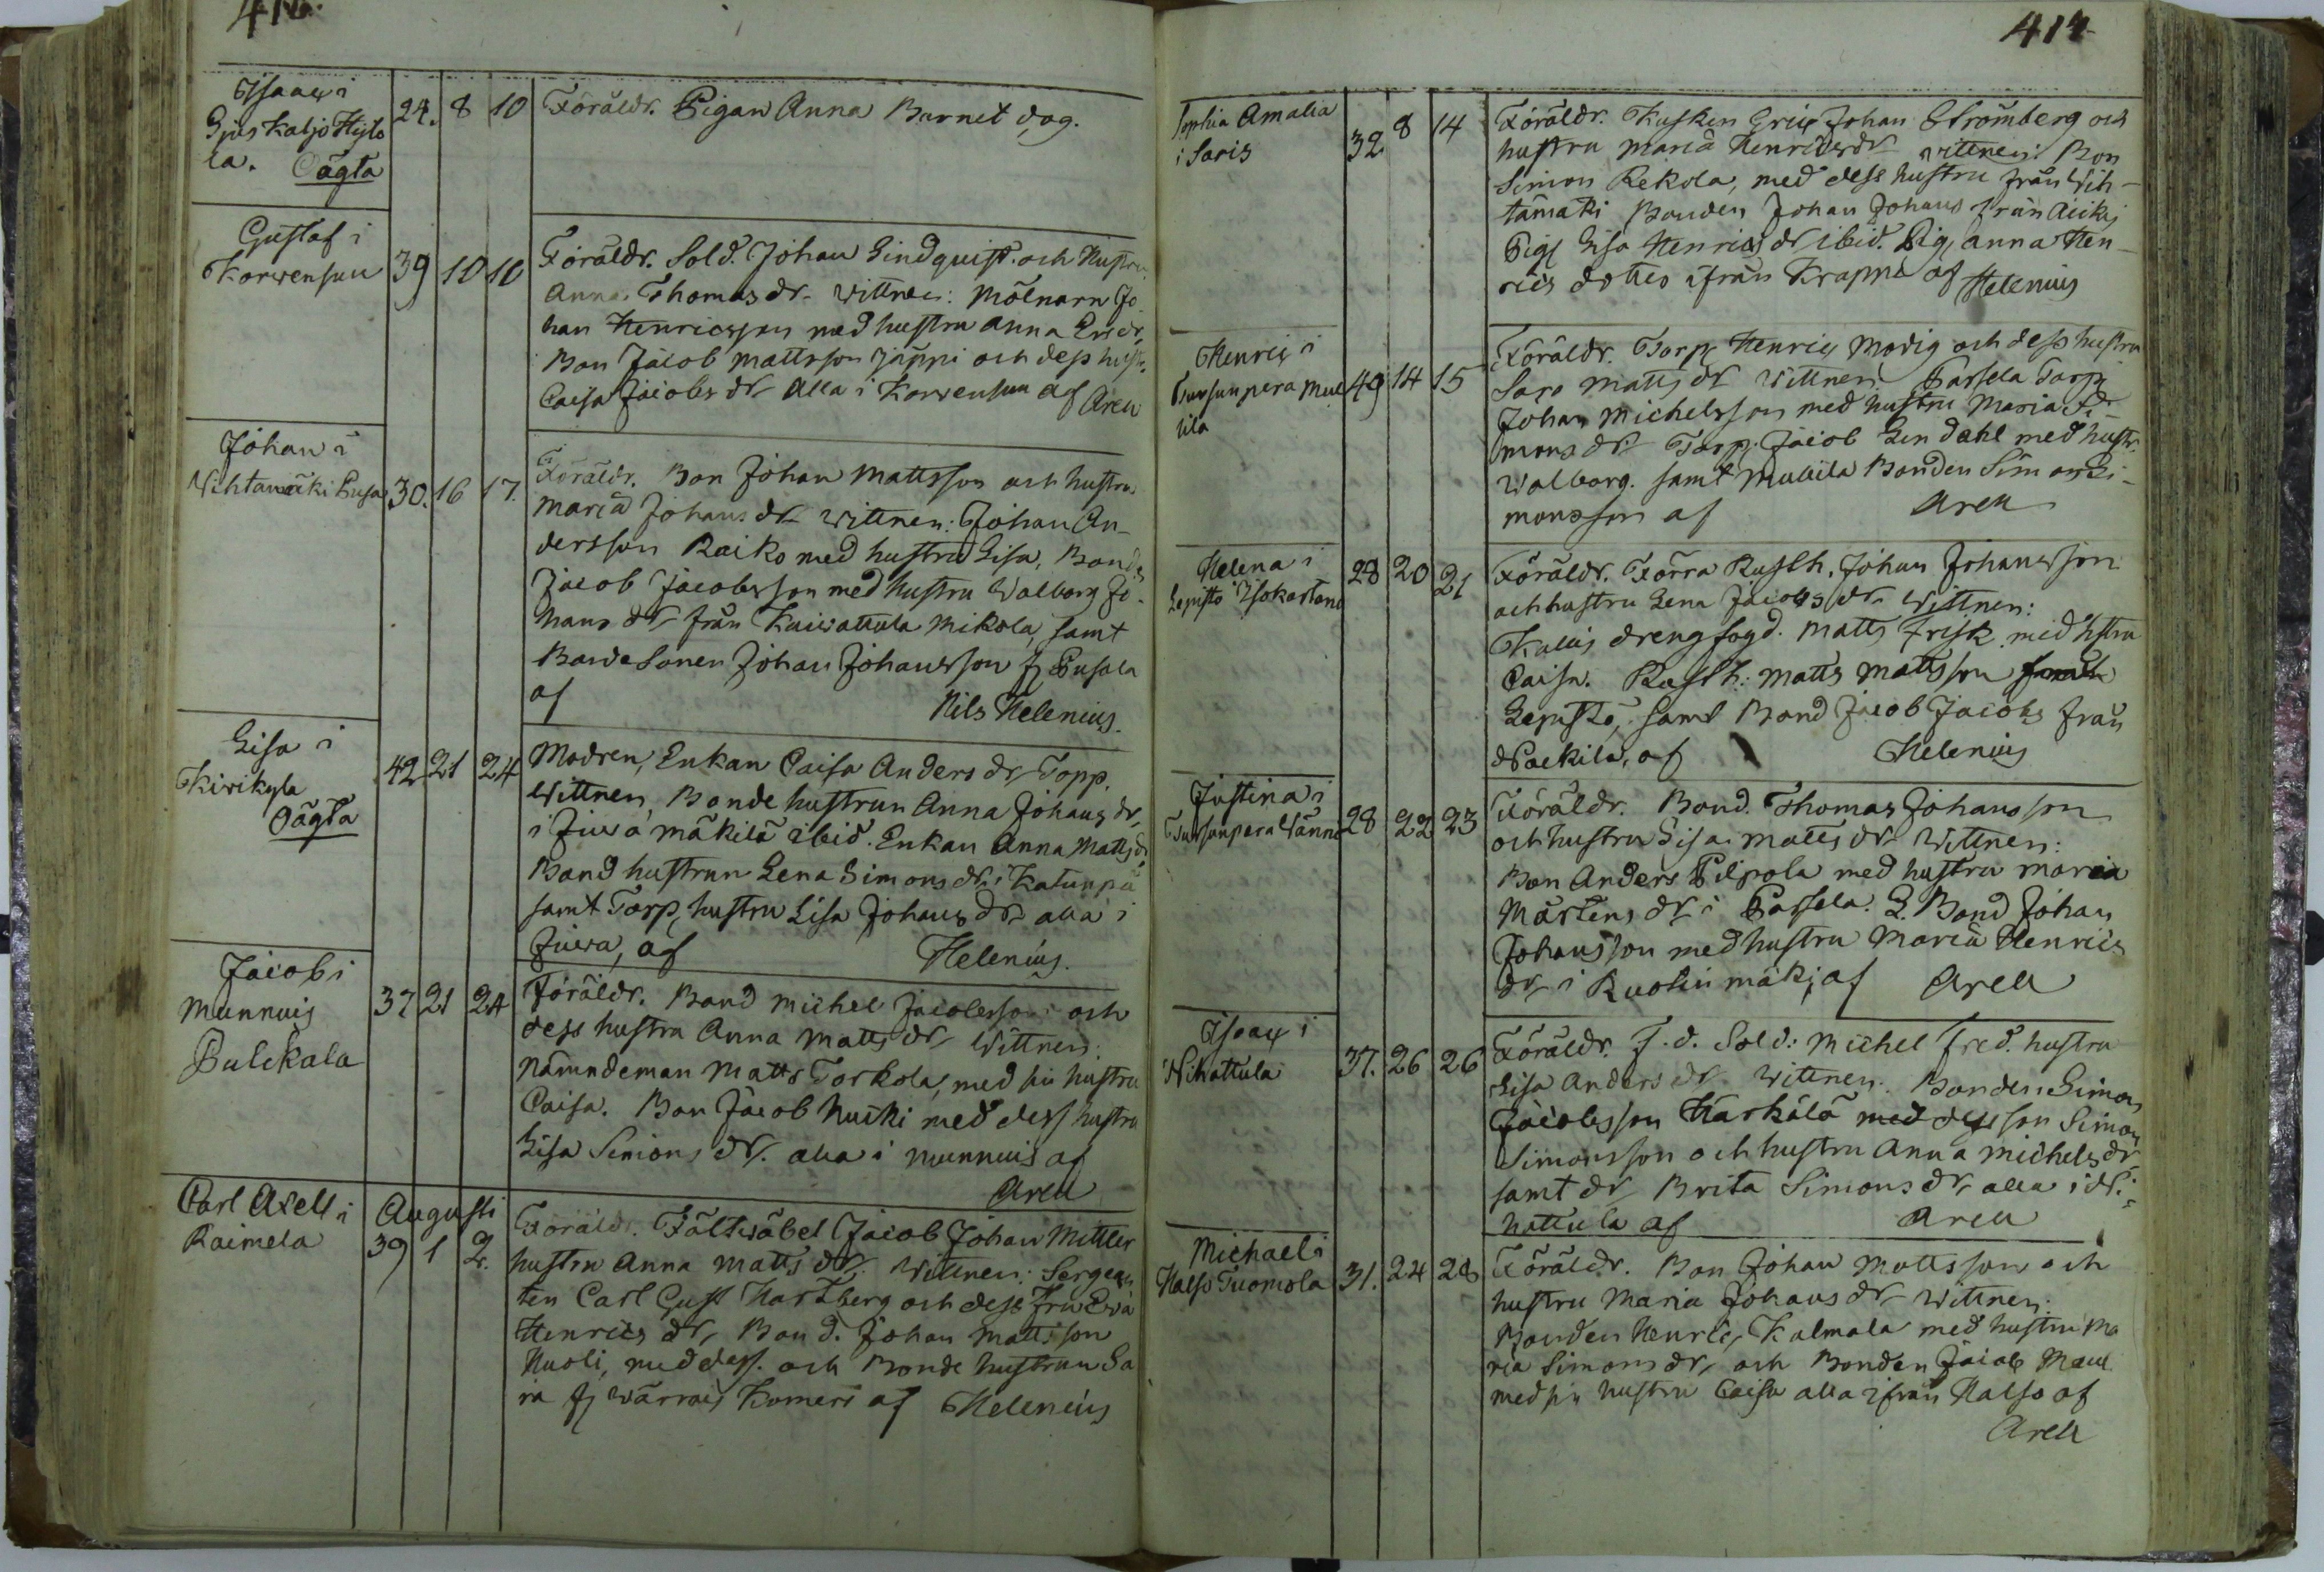 414
Isaac i
Hyto
la. Oägta
24. 8 10
Föräldr. Pigan Anna Barnet dog.
Gustaf i
Korvensuu
39 10 10
Föräldr. Sold. Johan Lindquist och Hustru
Anna Thomas dr. Wittnen: Mölnarn Jo
han Henricsson med hustru Anna Ersdr,
Bon Jacob Mattsson Jäppi och dess hustr.
Caisa Jacobs dr alla i Korvensuu af Aren
Johan i
Vihtamäki
30. 16 17.
Föräldr. Bon Johan Mattsson och hustru
Maria Johans dr Wittnen: Johan An-
dersson Raiko med hustru Lisa, Bond
Jacob Jacobsson med hustru Walborg Jo-
hans dr från Kaivattula Mikola, samt
Bonde Sonen Johan Johansson fr Pusala
af Nils Helenius.
Lisa i
Kirikyla
Oägta
42 21 24
Modren, Enkan Caisa Anders dr Topp.
Wittnen, Bonde hustrun Anna Johans dr,
i mäkilä ibid. Enkan Anna Matts dr
Bond hustrun Lena Simons dr i
samt Torp, hustru Lisa Johans dr alla i
af Helenius.
Jacob i
Munnuis
Pulckala
37 21 24
Föräldr. Bond Michel Jacobsson och
dess hustru Anna Matts dr, Wittnen:
Nämndeman Matts Torkola, med sin hustru
Caisa. Bon Jacob Huiki med dess hustru
Lisa Simons dr. alla i Munnuis af
Aren
Carl Axell i
Raimela
Augusti
39 1 2.
Föräldr. Fältwäbel Jacob Johan Mittler
hustru Anna Matts dr. Wittnen: Sergean
ten Carl Gust Hartzberg och dess fru Eva
Henrics dr, Bond. Johan Mattsson
Huoli, med dess. och Bonde hustrun Sa
ra fr af Helenius
Sophia Amalia
i Saris
32 8 14
Föräldr. Kusken Johan Strömberg och
hustru Maria Henricsdr wittnen: Bon
Simon Rekola, med dess hustru från Wih-
tämäki Bonden Johan Johans från
Pig Lisa Henrics dr ibid. Pig, Anna Hen-
rics dotter ifrån af Helenius
Henric i
Tursunpera Mul
lila
49 14 15
Föräldr. Torp, Henric Modig och dess hustru
Sara Matts dr Wittnen: Passela Torp
Johan Michelsson med hustru Maria Si-
mons dr. Torp. Jacob Lindahl med hustr.
Walborg. samt Mullila Bonden Simon Si-
monsson af Aren
Helena i
Lepistö Isokartano
28 20 21
Föräldr. Förra Rusth. Johan Johansson
och hustru Lena Jacobs dr. Wittnen:
drengfogd. Matts Frisk med hstru
Caisa. Rusth: Matts Mattsson
Lepistö, samt Bond Jacob Jacobs från
Packila, af Helenius
Justina i
Tursunpera
28 22 23
Föräldr. Bond. Thomas Johansson
och hustru Lisa Matts dr Wittnen:
Bon Anders Pilpola med hustru Maria
Mårtens dr i Passela. L. Bond Johan
Johansson med hustru Maria Henrics
dr, i Ruohimäki, af Aren
Isaac i
Nihattula
37. 26 26
Föräldr. F. d. Sold: Michel Fred. hustru
Lisa Anders dr. wittnen. Bonden Simon
Jacobsson Harkälä med dess son Simon
Simonsson och hustru Anna Michels dr
samt dr Brita Simons dr, alla i Ni-
hattula af Aren
Michael i
Halso Tuomola
31. 24 28
Föräldr. Bon Johan Mattsson och
hustru Maria Johans dr wittnen:
Bonden Henric, Kalmala med hustru Ma
ria Simons dr, och Bonden Jacob
med sin hustru Caisa alla ifrån Halso af
Aren